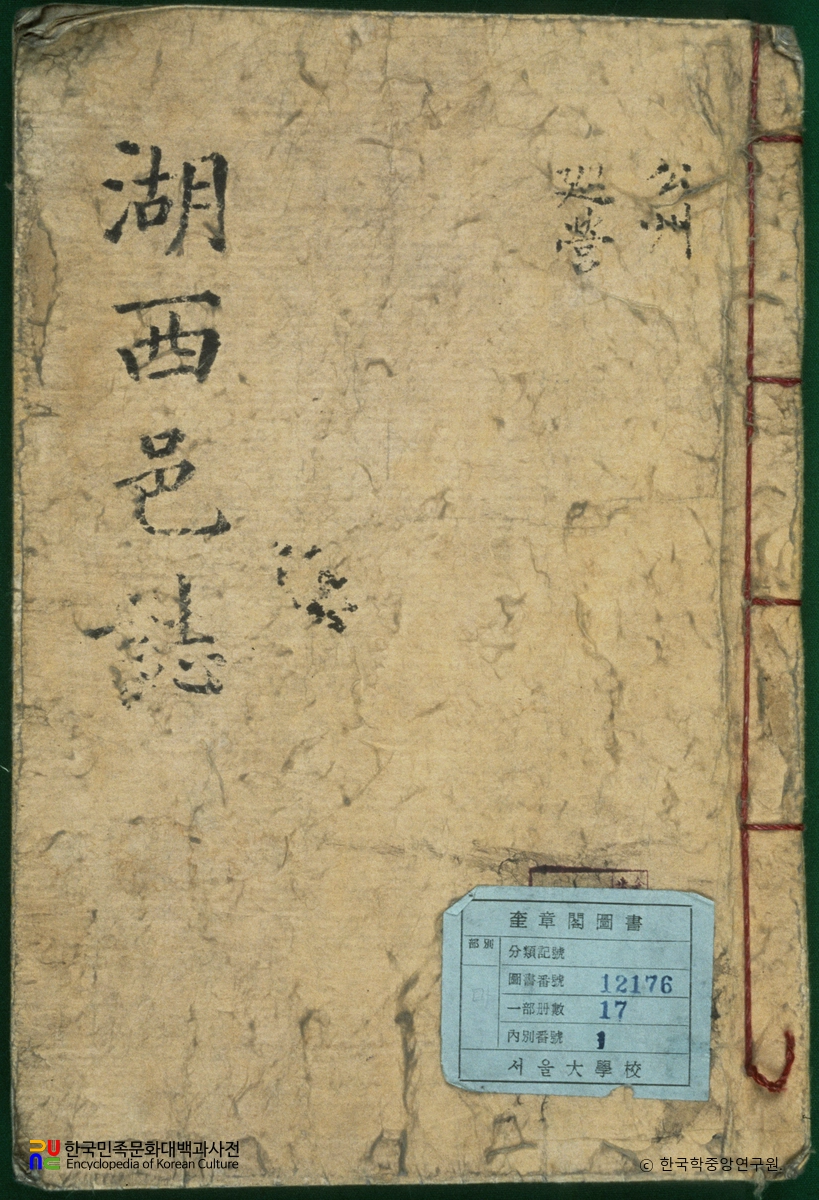 公州
巡營
湖西邑誌
奎章閣圖書
部別
分類記號
圖書番號 12176
一部册數 17
內別番號 1
서울大學校
한국민족문화대백과사전
Encyclopedia of Korean Culture
© 한국학중앙연구원